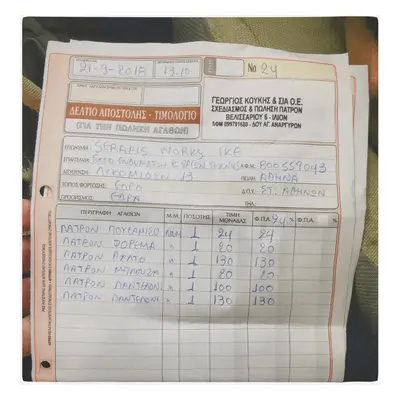 21-9-2018 13.10 No 24
ΓΕΩΡΓΙΟΣ ΚΟΥΚΗΣ & ΣΙΑ Ο.Ε.
ΣΧΕΔΙΑΣΜΟΣ & ΠΩΛΗΣΗ ΠΑΤΡΟΝ
ΒΕΛΙΣΣΑΡΙΟΥ 6 - ΙΛΙΟΝ
ΑΦΜ 099791680 - ΔΟΥ ΑΓ. ΑΝΑΡΓΥΡΩΝ
ΔΕΛΤΙΟ ΑΠΟΣΤΟΛΗΣ - ΤΙΜΟΛΟΓΙΟ
(ΓΙΑ ΤΗΝ ΠΩΛΗΣΗ ΑΓΑΘΩΝ)
ΕΠΩΝΥΜΙΑ SERAPIS WORKS IKE
ΕΠΑΓΓΕΛΜΑ Α.Φ.Μ. 800559043
ΔΙΕΥΘΥΝΣΗ 13 ΠΟΛΗ ΑΘΗΝΑ
ΤΟΠΟΣ ΦΟΡΤΩΣΗΣ ΕΔΡΑ Δ.Ο.Υ. ΣΤ. ΑΘΗΝΩΝ
ΠΡΟΟΡΙΣΜΟΣ ΕΔΡΑ ΤΗΛ.
ΠΕΡΙΓΡΑΦΗ ΑΓΑΘΩΝ Μ.Μ. ΠΟΣΟΤΗΣ ΤΙΜΗ ΜΟΝΑΔΑΣ Φ.Π.Α. 24 % Φ.Π.Α. %
ΠΑΤΡΟΝ 1 24 24
ΠΑΤΡΟΝ ΦΟΡΕΜΑ " 1 20 20
ΠΑΤΡΟΝ ΠΑΛΤΟ " 1 130 130
ΠΑΤΡΟΝ ΜΠΛΟΥΖΑ " 1 20 20
ΠΑΤΡΟΝ ΠΑΝΤΕΛΟΝΙ " 1 100 100
ΠΑΤΡΟΝ ΠΑΝΤΕΛΟΝΙ " 1 130 130